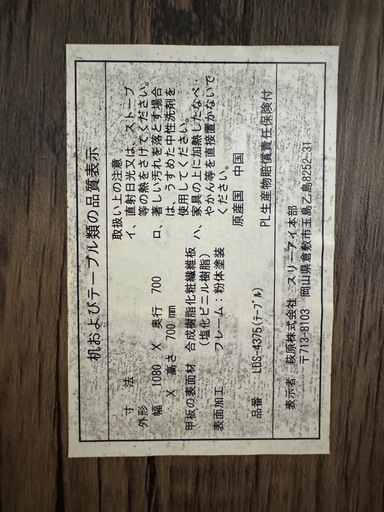 机およびテーブル類の品質表示
寸 法
外形
幅 1080 X 奥行 700
X 高さ 700 mm
甲板の表面材 合成樹脂化粧繊維板
(塩化ビニル樹脂)
表面加工 フレーム:粉体塗装
品番 LDS-4375(ﾃｰﾌﾞﾙ)
取扱い上の注意
イ、直射日光又は、ストーブ
等の熱をさけてください。
ロ、著しい汚れを落とす場合
は、うすめた中性洗剤を
使用してください。
ハ、家具の上に加熱したなべ・
やかん等を直接置かないで
ください。
原産国 中国
PL生産物賠償責任保険付
表示者 萩原株式会社 スリーアイ本部
〒713-8103 岡山県倉敷市玉島乙島8252-31